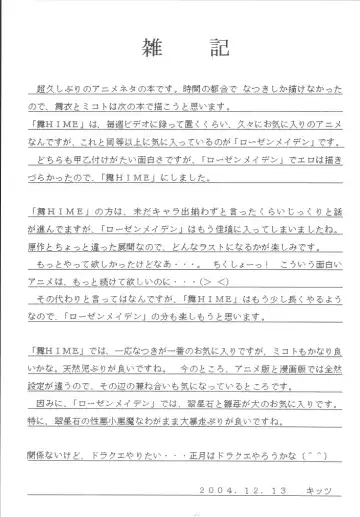 雑　記
超久しぶりのアニメネタの本です。時間の都合で なつきしか描けなかった
ので、舞衣とミコトは次の本で描こうと思います。
「舞ＨＩＭＥ」は、毎週ビデオに録って置くくらい、久々にお気に入りのアニメ
なんですが、これと同等以上に気に入っているのが「ローゼンメイデン」です。
どちらも甲乙付けがたい面白さですが、「ローゼンメイデン」でエロは描き
づらかったので、「舞ＨＩＭＥ」にしました。
「舞ＨＩＭＥ」の方は、未だキャラ出揃わずと言ったくらいじっくりと話
が進んでますが、「ローゼンメイデン」はもう佳境に入ってしまいましたね。
原作とちょっと違った展開なので、どんなラストになるかが楽しみです。
もっとやって欲しかったけどなあ・・・。　ちくしょーっ！　こういう面白い
アニメは、もっと続けて欲しいのに・・・(＞ ＜)
その代わりと言ってはなんですが、「舞ＨＩＭＥ」はもう少し長くやるよう
なので、「ローゼンメイデン」の分も楽しもうと思います。
「舞ＨＩＭＥ」では、一応なつきが一番のお気に入りですが、ミコトもかなり良
いかな。天然児ぶりが良いですね。　今のところ、アニメ版と漫画版では全然
設定が違うので、その辺の兼ね合いも気になっているところです。
因みに、「ローゼンメイデン」では、翠星石と雛苺が大のお気に入りです。
特に、翠星石の性悪小悪魔なわがまま大暴走ぶりが良いですね。
関係ないけど、ドラクエやりたい・・・正月はドラクエやろうかな（＾＾）
２００４．１２．１３　　キッツ